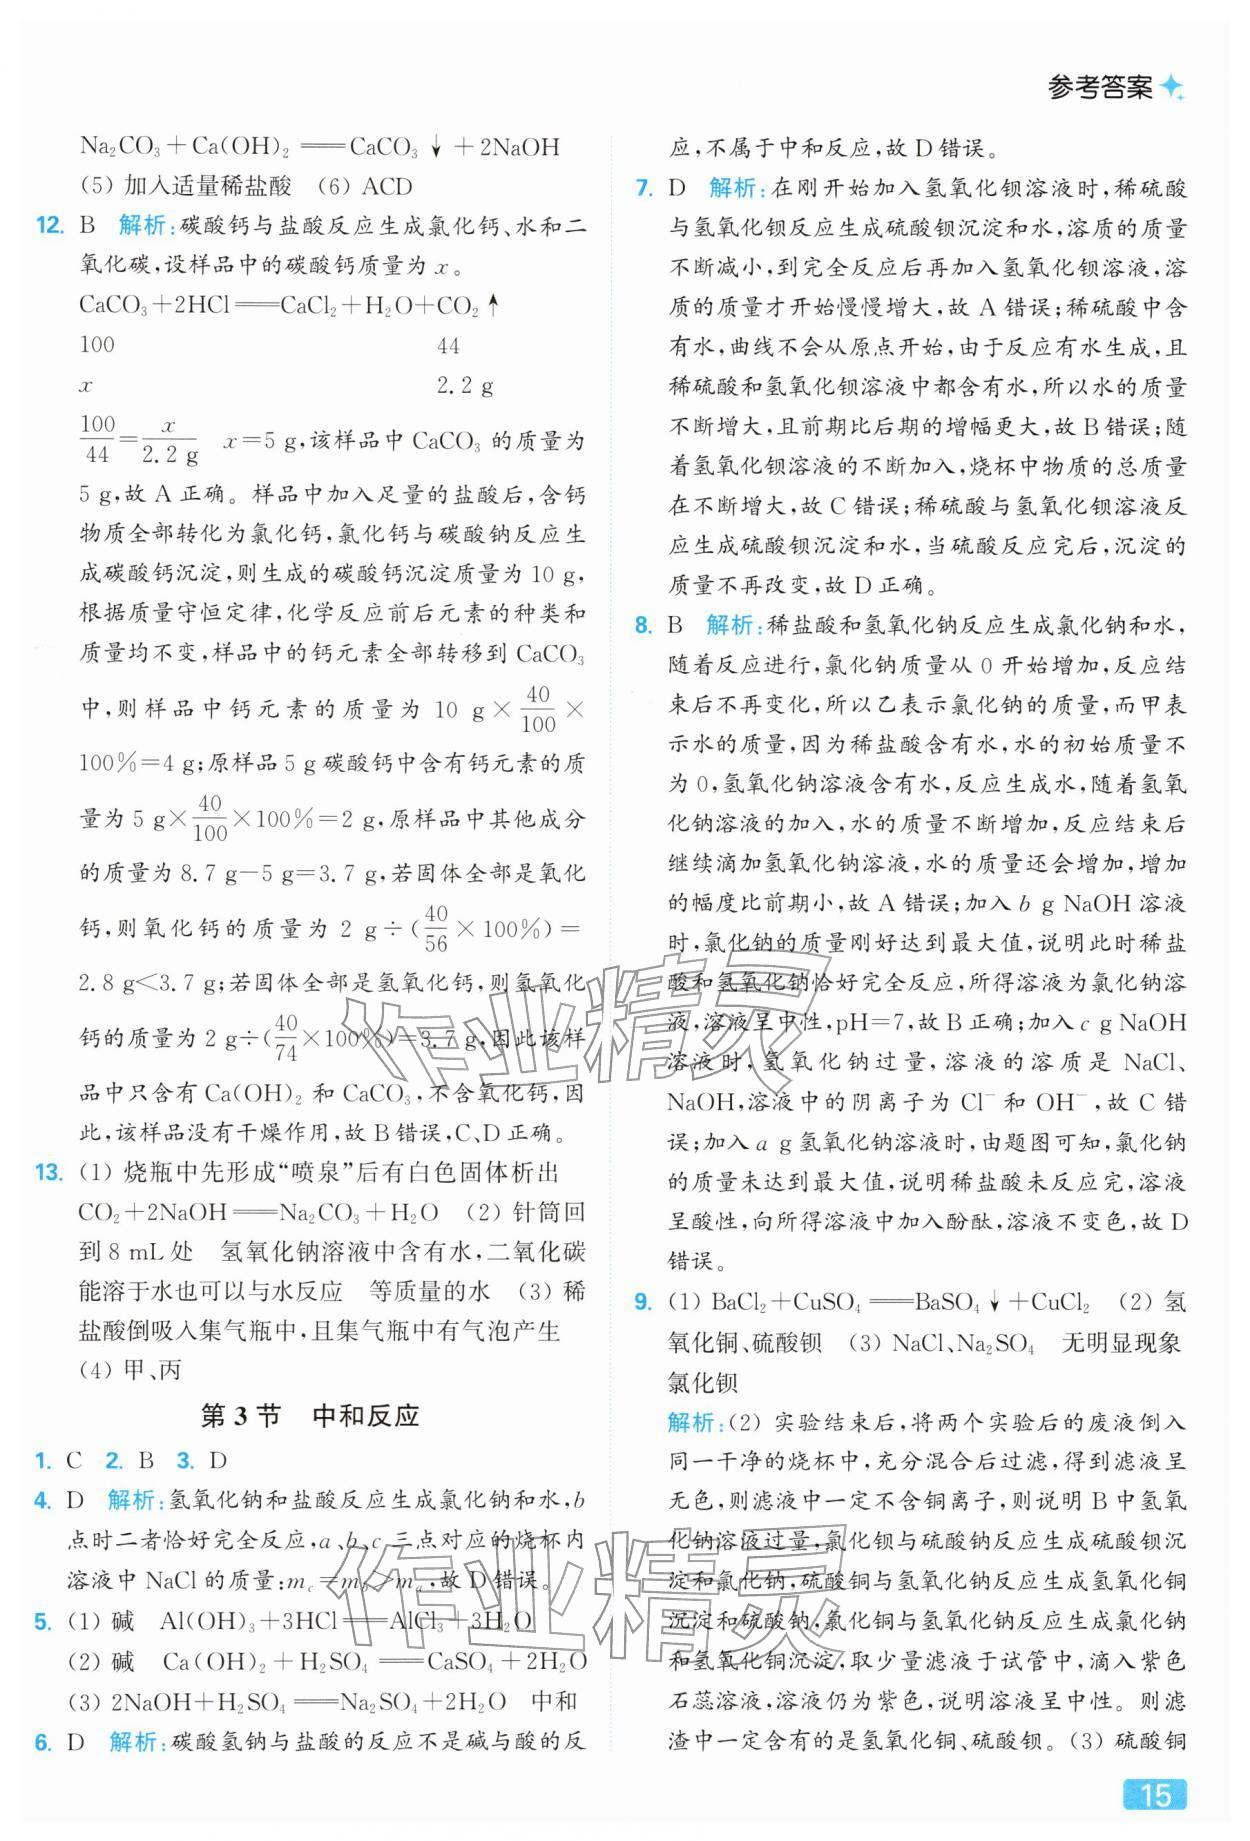 参考答案
Na₂CO₃+Ca(OH)₂══CaCO₃↓+2NaOH
(5) 加入适量稀盐酸 (6) ACD
12. B 解析:碳酸钙与盐酸反应生成氯化钙、水和二
氧化碳,设样品中的碳酸钙质量为 x。
CaCO₃+2HCl══CaCl₂+H₂O+CO₂↑
100 44
x 2.2 g
100/44=x/2.2 g x=5 g,该样品中 CaCO₃ 的质量为
5 g,故 A 正确。样品中加入足量的盐酸后,含钙
物质全部转化为氯化钙,氯化钙与碳酸钠反应生
成碳酸钙沉淀,则生成的碳酸钙沉淀质量为 10 g,
根据质量守恒定律,化学反应前后元素的种类和
质量均不变,样品中的钙元素全部转移到 CaCO₃
中,则样品中钙元素的质量为 10 g×40/100×
100%=4 g;原样品 5 g 碳酸钙中含有钙元素的质
量为 5 g×40/100×100%=2 g,原样品中其他成分
的质量为 8.7 g-5 g=3.7 g,若固体全部是氧化
钙,则氧化钙的质量为 2 g÷(40/56×100%)=
2.8 g<3.7 g;若固体全部是氢氧化钙,则氢氧化
钙的质量为 2 g÷(40/74×100%)=3.7 g,因此该样
品中只含有 Ca(OH)₂ 和 CaCO₃,不含氧化钙,因
此,该样品没有干燥作用,故 B 错误,C、D 正确。
13. (1) 烧瓶中先形成“喷泉”后有白色固体析出
CO₂+2NaOH══Na₂CO₃+H₂O (2) 针筒回
到 8 mL 处 氢氧化钠溶液中含有水,二氧化碳
能溶于水也可以与水反应 等质量的水 (3) 稀
盐酸倒吸入集气瓶中,且集气瓶中有气泡产生
(4) 甲、丙
第 3 节 中和反应
1. C 2. B 3. D
4. D 解析:氢氧化钠和盐酸反应生成氯化钠和水,b
点时二者恰好完全反应,a、b、c 三点对应的烧杯内
溶液中 NaCl 的质量:m_c=m_b>m_a,故 D 错误。
5. (1) 碱 Al(OH)₃+3HCl══AlCl₃+3H₂O
(2) 碱 Ca(OH)₂+H₂SO₄══CaSO₄+2H₂O
(3) 2NaOH+H₂SO₄══Na₂SO₄+2H₂O 中和
6. D 解析:碳酸氢钠与盐酸的反应不是碱与酸的反
应,不属于中和反应,故 D 错误。
7. D 解析:在刚开始加入氢氧化钡溶液时,稀硫酸
与氢氧化钡反应生成硫酸钡沉淀和水,溶质的质量
不断减小,到完全反应后再加入氢氧化钡溶液,溶
质的质量才开始慢慢增大,故 A 错误;稀硫酸中含
有水,曲线不会从原点开始,由于反应有水生成,且
稀硫酸和氢氧化钡溶液中都含有水,所以水的质量
不断增大,且前期比后期的增幅更大,故 B 错误;随
着氢氧化钡溶液的不断加入,烧杯中物质的总质量
在不断增大,故 C 错误;稀硫酸与氢氧化钡溶液反
应生成硫酸钡沉淀和水,当硫酸反应完后,沉淀的
质量不再改变,故 D 正确。
8. B 解析:稀盐酸和氢氧化钠反应生成氯化钠和水,
随着反应进行,氯化钠质量从 0 开始增加,反应结
束后不再变化,所以乙表示氯化钠的质量,而甲表
示水的质量,因为稀盐酸含有水,水的初始质量不
为 0,氢氧化钠溶液含有水,反应生成水,随着氢氧
化钠溶液的加入,水的质量不断增加,反应结束后
继续滴加氢氧化钠溶液,水的质量还会增加,增加
的幅度比前期小,故 A 错误;加入 b g NaOH 溶液
时,氯化钠的质量刚好达到最大值,说明此时稀盐
酸和氢氧化钠恰好完全反应,所得溶液为氯化钠溶
液,溶液呈中性,pH=7,故 B 正确;加入 c g NaOH
溶液时,氢氧化钠过量,溶液的溶质是 NaCl、
NaOH,溶液中的阴离子为 Cl⁻ 和 OH⁻,故 C 错
误;加入 a g 氢氧化钠溶液时,由题图可知,氯化钠
的质量未达到最大值,说明稀盐酸未反应完,溶液
呈酸性,向所得溶液中加入酚酞,溶液不变色,故 D
错误。
9. (1) BaCl₂+CuSO₄══BaSO₄↓+CuCl₂ (2) 氢
氧化铜、硫酸钡 (3) NaCl、Na₂SO₄ 无明显现象
氯化钡
解析:(2) 实验结束后,将两个实验后的废液倒入
同一干净的烧杯中,充分混合后过滤,得到滤液呈
无色,则滤液中一定不含铜离子,则说明 B 中氢氧
化钠溶液过量,氯化钡与硫酸钠反应生成硫酸钡沉
淀和氯化钠,硫酸铜与氢氧化钠反应生成氢氧化铜
沉淀和硫酸钠,氯化铜与氢氧化钠反应生成氯化钠
和氢氧化铜沉淀,取少量滤液于试管中,滴入紫色
石蕊溶液,溶液仍为紫色,说明溶液呈中性。则滤
渣中一定含有的是氢氧化铜、硫酸钡。(3) 硫酸铜
15
作业精灵
作业精灵